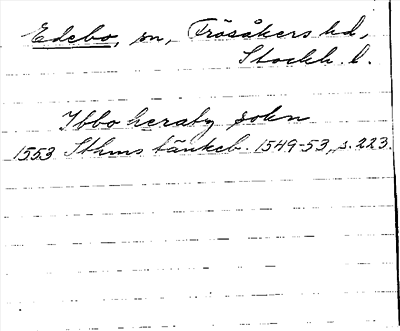 Edebo, sn, Frösåkers hd,
Stockh. l.
Ibbo heraby sokn
1553 Sthms tänkeb. 1549-53, s. 223.